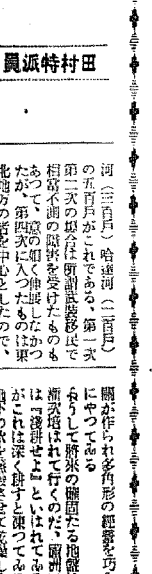 田村特派員
河（三百戸）哈達河（二百戸）
の五百戸がこれである、第一次
第二次の場合は所謂武装移民で
相當不測の障害を受けたものも
あつて、意の如く伸展しなかつ
たが、第四次に入つたものは東
北地方の者を中心としたので、
關が作られ多角形の經營を巧
にやつてゐる
して將來の確固たる地盤
培はれて行くのだ、
は『淺耕せよ』といはれてゐ
がこれは深く耕すと凍つてゐ